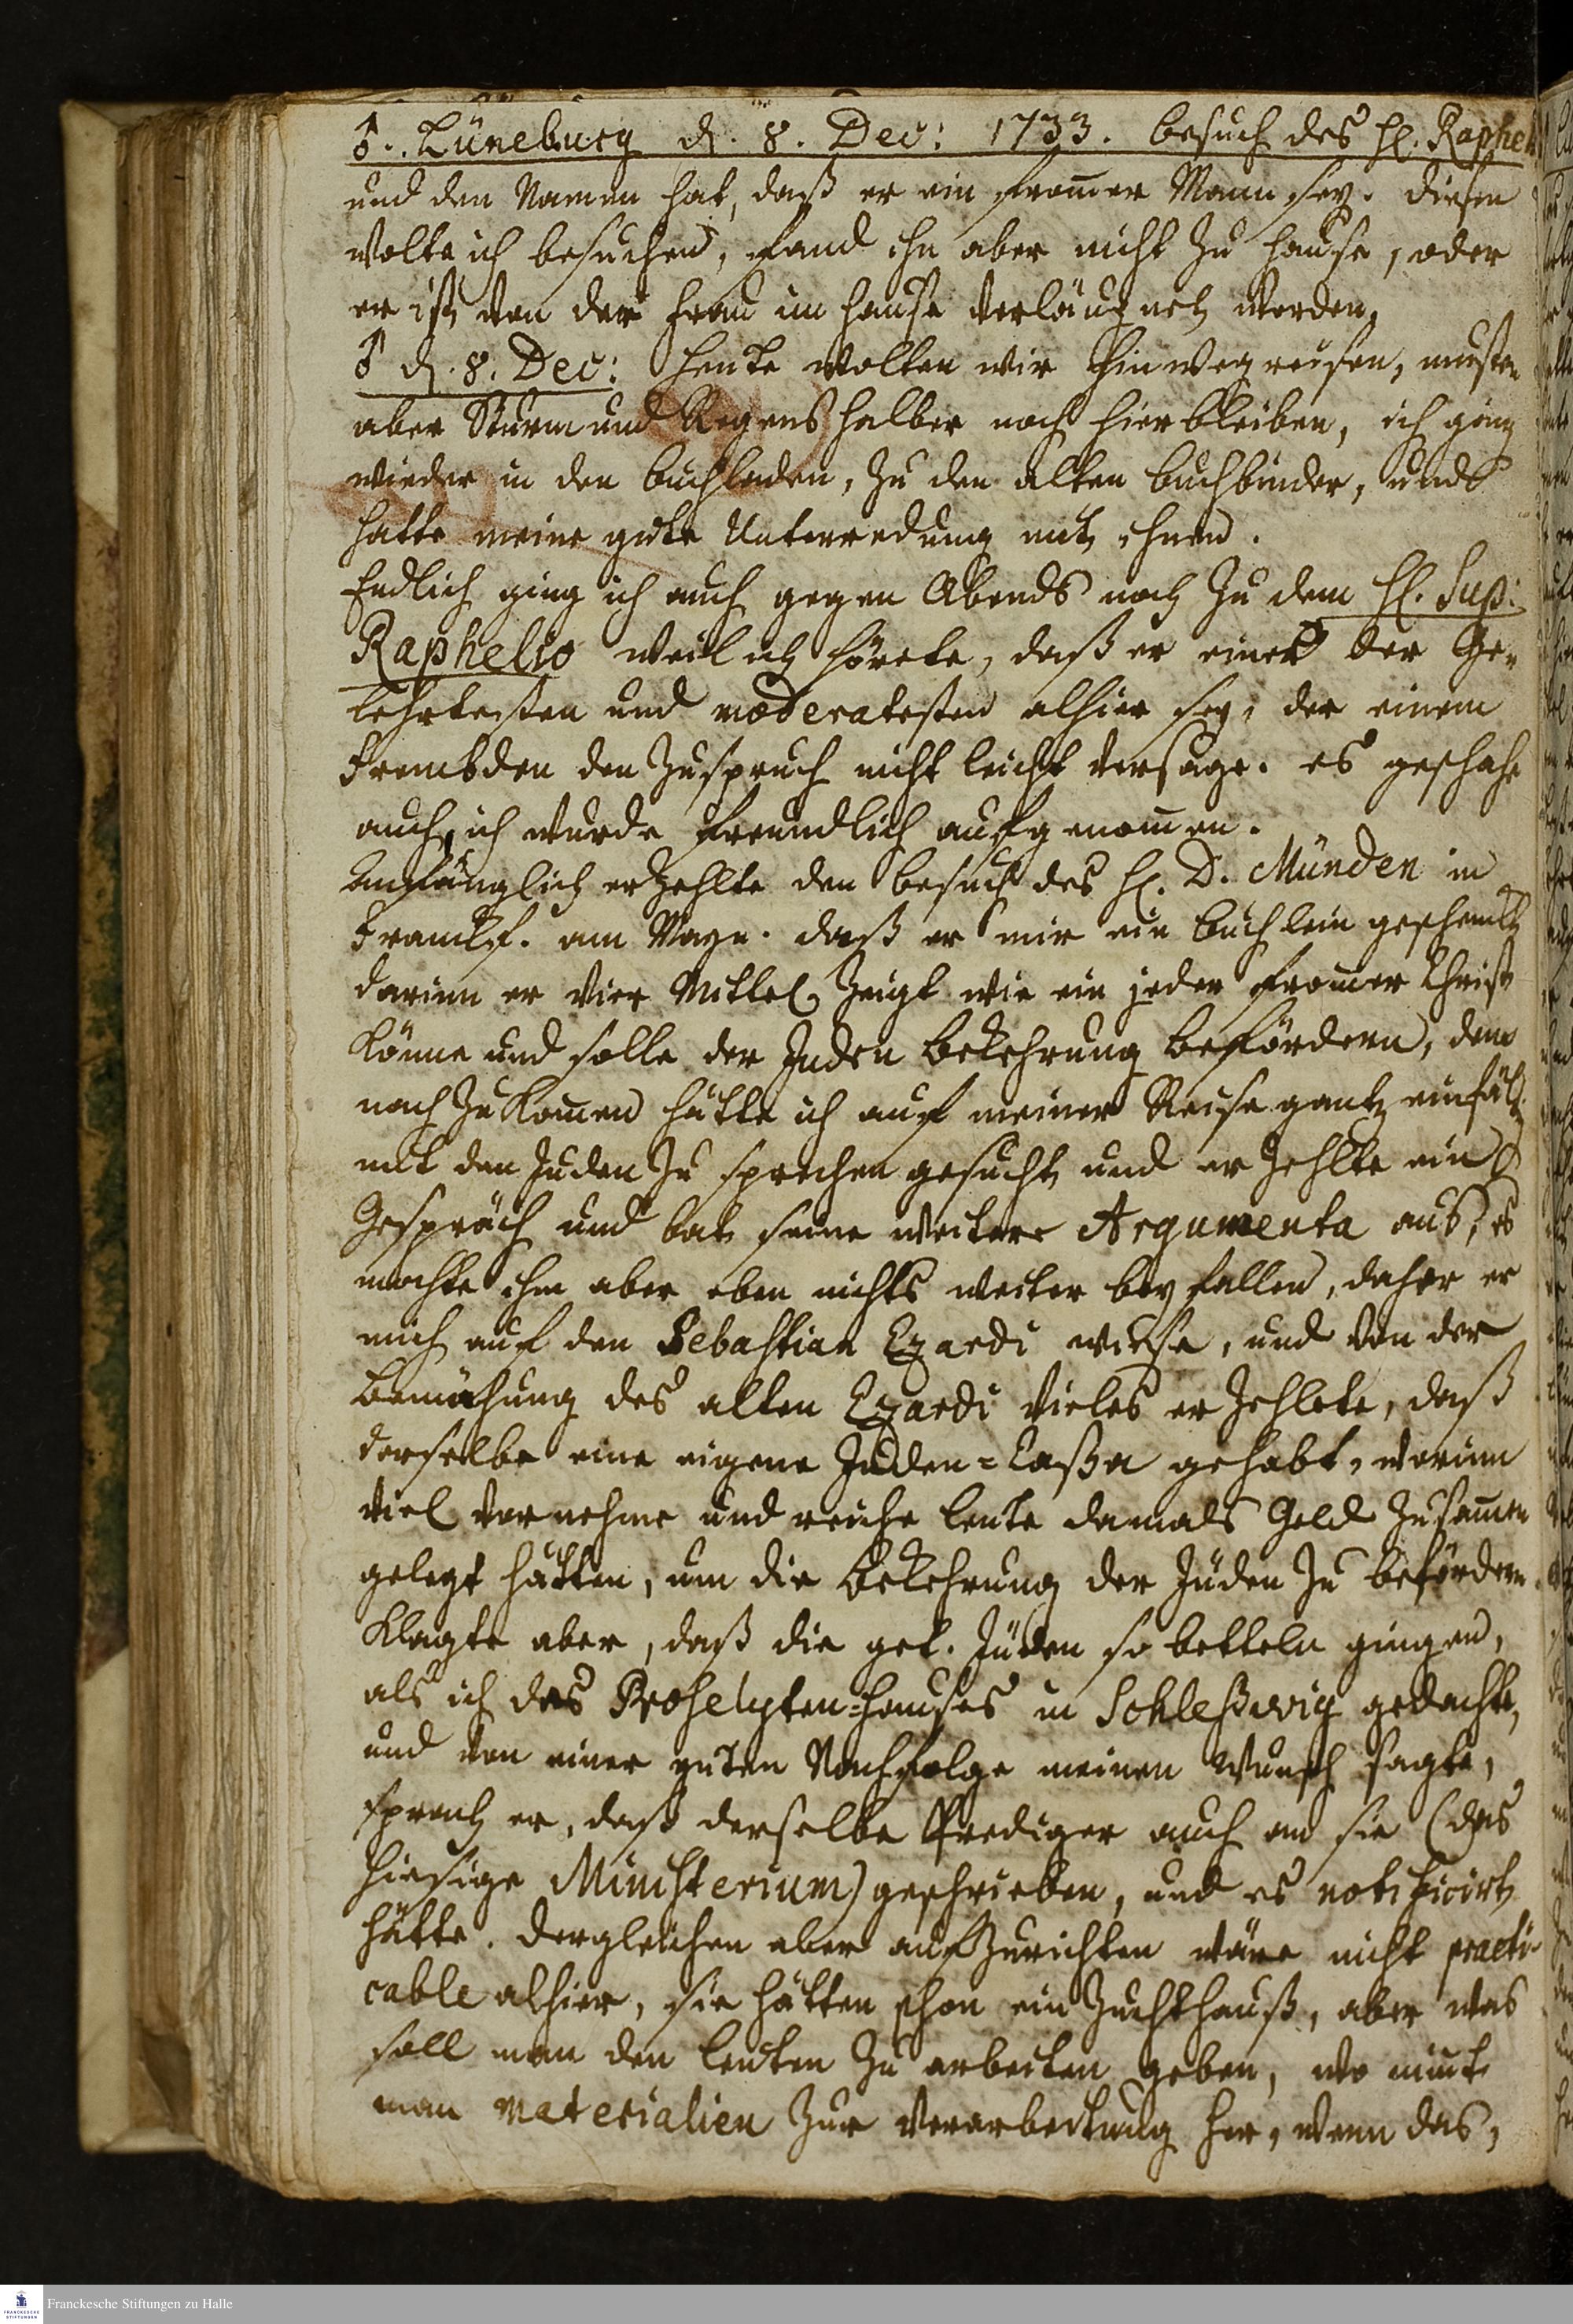 ♂. Lüneburg d. 8. Dec: 1733. besuch des H. Raphel
und den Namen hat, daß er ein from̄er Mann sey. diesen
wolte ich besuchen, fand ihn aber nicht zu Hause, oder
er ist von der Frau im Hause verläugnet worden,
♂ d. 8. Dec: Heute wolten wir hinweg reisen, musten
aber Sturm und Regens halber noch hier bleiben, ich ging
wieder in den buchladen, zu den alten buchbinder, und
hatte meine gute Unterredung mit ihnen.
Endlich ging ich auch gegen Abends noch zu dem H. Sup:
Raphelio weil ich hörete, daß er einer der Ge-
lehrtesten und moderatesten alhier sey, der einem
Frembden den Zuspruch nicht leicht versage. es geschahe
auch, ich wurde freundlich aufgenom̄en.
Anfänglich erzehlte den besuch des H. D. Münden in
Franckf. am Mayn. daß er mir ein büchlein geschenckt
darinn er vier Mittel zeigt wie ein jeder from̄er Christ
könne und solle der Juden bekehrung befördern, dem
nach zu kom̄en hätte ich auf meiner Reise gantz einfält.
mit den Juden zu sprechen gesucht, und erzehlte ein
Gespräch und bat seine weitere Argumenta aus, es
mochte ihm aber eben nichts weiter beyfallen, daher er
mich auf den Sebastian Ezardi wiese, und von der
bemühung des alten Ezardi vieles erzehlete, daß
derselbe eine eigene Juden=Cassa gehabt, worinn
viel vornehme und reiche leute damals Geld zusam̄en
gelegt hätten, um die bekehrung der Jüden zu befördern
klagte aber, daß die get. Jüden so betteln gingen,
als ich des Proselyten=Hauses in Schleßwig gedachte,
und von einer guten Nachfolge meinen Wunsch sagte,
sprach er, daß derselbe Prediger auch an sie (das
hiesige Ministerium) geschrieben, und es notificirt
hätte. dergleichen aber aufzurichten wäre nicht practi-
cable alhier, sie hätten schon ein Zuchthauß, aber was
soll man den leuten zu arbeiten geben, wo nim̄t
man materialien zur Verarbeitung her, wenn das,
Franckesche Stiftungen zu Halle